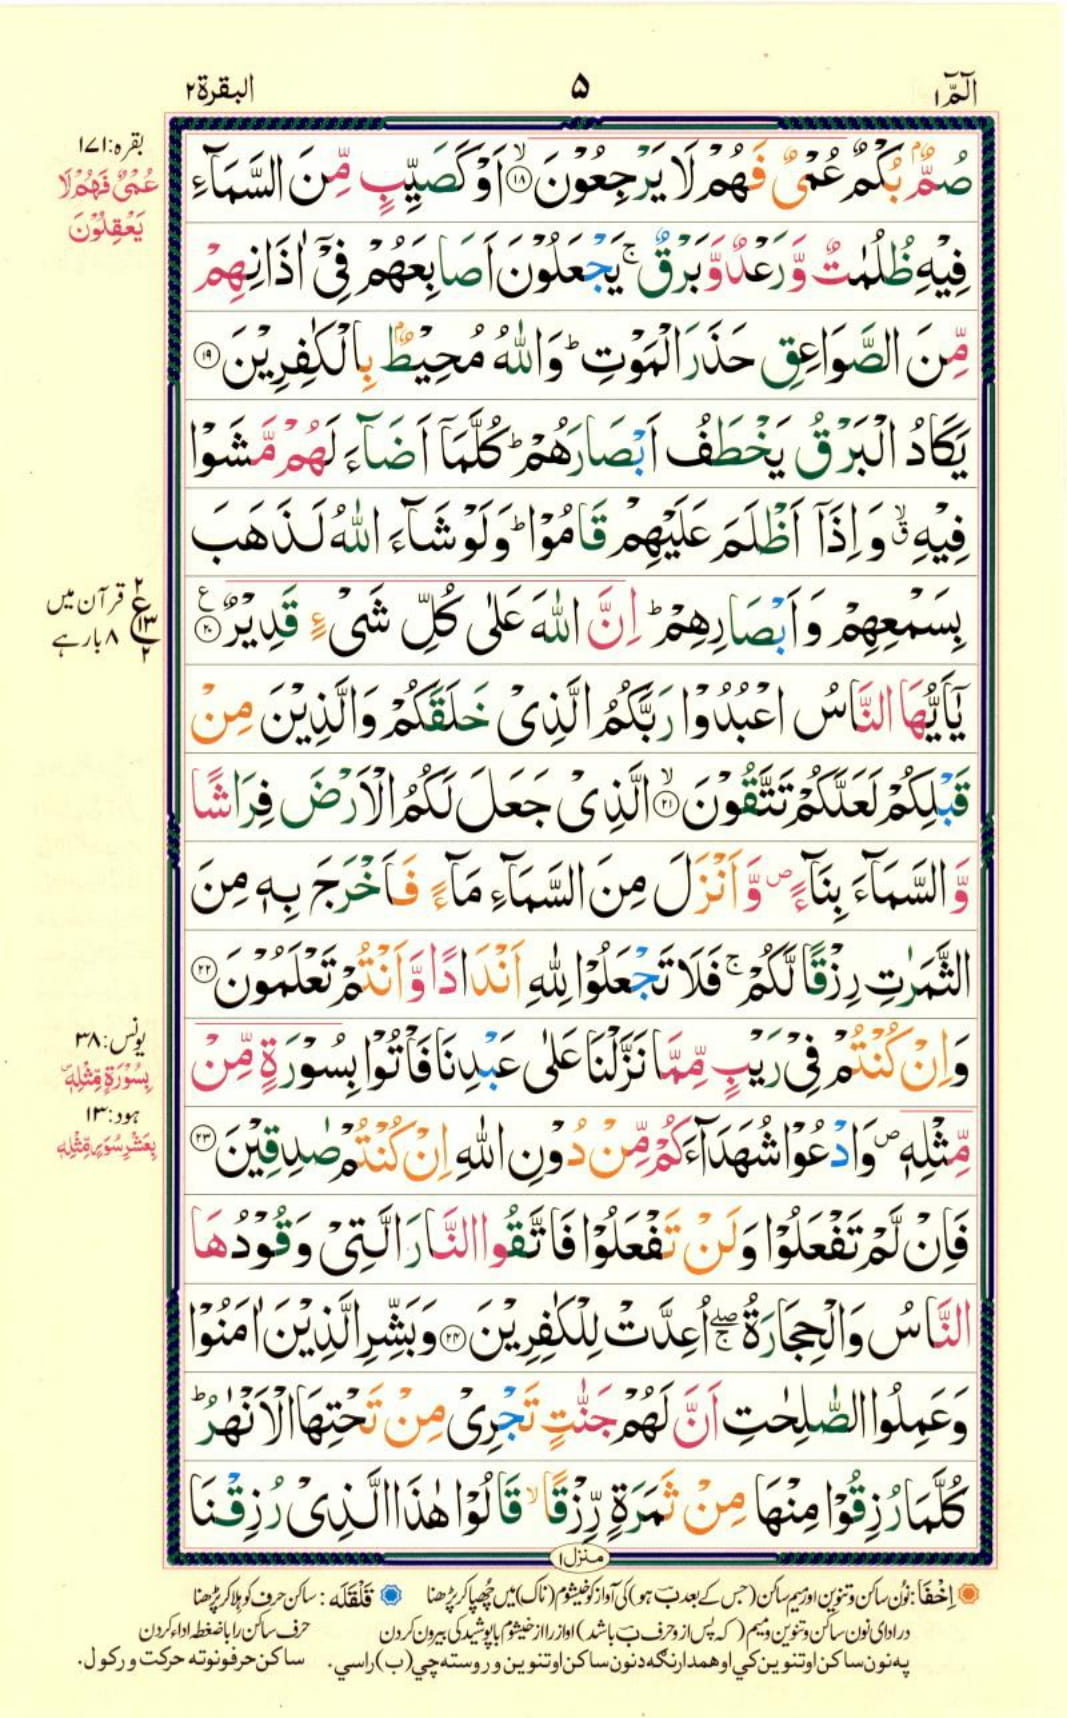 الٓمّٓ ١ ۵ البقرة ٢
صُمٌّۢ بُكْمٌ عُمْیٌ فَهُمْ لَا یَرْجِعُوْنَ ۙ﴿۱۸﴾ اَوْ كَصَیِّبٍ مِّنَ السَّمَآءِ
فِیْهِ ظُلُمٰتٌ وَّرَعْدٌ وَّبَرْقٌ ۚ یَجْعَلُوْنَ اَصَابِعَهُمْ فِیْۤ اٰذَانِهِمْ
مِّنَ الصَّوَاعِقِ حَذَرَ الْمَوْتِ ؕ وَاللّٰهُ مُحِیْطٌۢ بِالْكٰفِرِیْنَ ﴿۱۹﴾
یَكَادُ الْبَرْقُ یَخْطَفُ اَبْصَارَهُمْ ؕ كُلَّمَاۤ اَضَآءَ لَهُمْ مَّشَوْا
فِیْهِ ۙۗ وَاِذَاۤ اَظْلَمَ عَلَیْهِمْ قَامُوْا ؕ وَلَوْ شَآءَ اللّٰهُ لَذَهَبَ
بِسَمْعِهِمْ وَاَبْصَارِهِمْ ؕ اِنَّ اللّٰهَ عَلٰی كُلِّ شَیْءٍ قَدِیْرٌ ﴿۲۰﴾ ع
یٰۤاَیُّهَا النَّاسُ اعْبُدُوْا رَبَّكُمُ الَّذِیْ خَلَقَكُمْ وَالَّذِیْنَ مِنْ
قَبْلِكُمْ لَعَلَّكُمْ تَتَّقُوْنَ ۙ﴿۲۱﴾ الَّذِیْ جَعَلَ لَكُمُ الْاَرْضَ فِرَاشًا
وَّالسَّمَآءَ بِنَآءً ۪ وَّاَنْزَلَ مِنَ السَّمَآءِ مَآءً فَاَخْرَجَ بِهٖ مِنَ
الثَّمَرٰتِ رِزْقًا لَّكُمْ ۚ فَلَا تَجْعَلُوْا لِلّٰهِ اَنْدَادًا وَّاَنْتُمْ تَعْلَمُوْنَ ﴿۲۲﴾
وَاِنْ كُنْتُمْ فِیْ رَیْبٍ مِّمَّا نَزَّلْنَا عَلٰی عَبْدِنَا فَاْتُوْا بِسُوْرَةٍ مِّنْ
مِّثْلِهٖ ۪ وَادْعُوْا شُهَدَآءَكُمْ مِّنْ دُوْنِ اللّٰهِ اِنْ كُنْتُمْ صٰدِقِیْنَ ﴿۲۳﴾
فَاِنْ لَّمْ تَفْعَلُوْا وَلَنْ تَفْعَلُوْا فَاتَّقُوا النَّارَ الَّتِیْ وَقُوْدُهَا
النَّاسُ وَالْحِجَارَةُ ۖۚ اُعِدَّتْ لِلْكٰفِرِیْنَ ﴿۲۴﴾ وَبَشِّرِ الَّذِیْنَ اٰمَنُوْا
وَعَمِلُوا الصّٰلِحٰتِ اَنَّ لَهُمْ جَنّٰتٍ تَجْرِیْ مِنْ تَحْتِهَا الْاَنْهٰرُ ؕ
كُلَّمَا رُزِقُوْا مِنْهَا مِنْ ثَمَرَةٍ رِّزْقًا ۙ قَالُوْا هٰذَا الَّذِیْ رُزِقْنَا
منزل ١
بقره: ۱۷۱
عُمْیٌ فَهُمْ لَا
یَعْقِلُوْنَ
۲ ع ۱۳ ۲ قرآن میں
۸ بار ہے
یونس: ۳۸
بِسُوْرَةٍ مِّثْلِهٖ
ہود: ۱۳
بِعَشْرِ سُوَرٍ مِّثْلِهٖ
اِخْفَا: نون ساکن و تنوین اور میم ساکن (جس کے بعد ب ہو) کی آواز کو خیشوم (ناک) میں چھپا کر پڑھنا قَلْقَلَه: ساکن حرف کو ہلا کر پڑھنا
در ادای نون ساکن و تنوین و میم (که پس از و حرف ب باشد) آواز را از خیشوم با پوشیدگی بیرون کردن حرف ساکن را با ضغطه اداء کردن
په نون ساکن او تنوین کي او همدارنگه د نون ساکن او تنوین وروسته چي (ب) راسي. ساکن حرفونو ته حرکت ورکول.